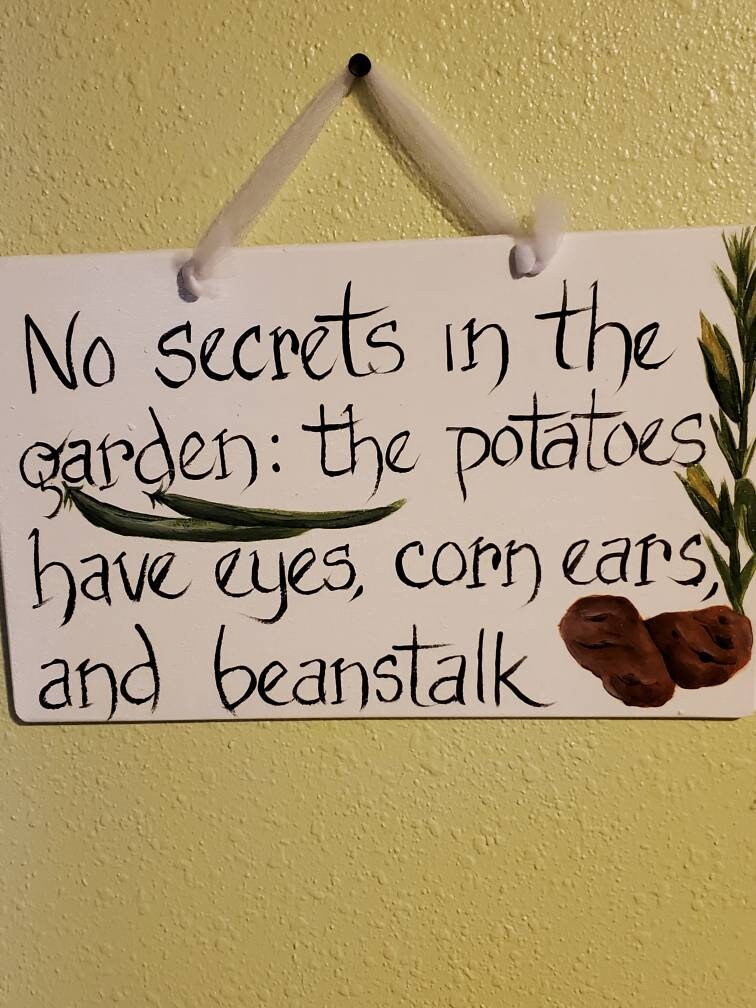 No secrets in the
garden: the potatoes
have eyes, corn ears,
and beanstalk